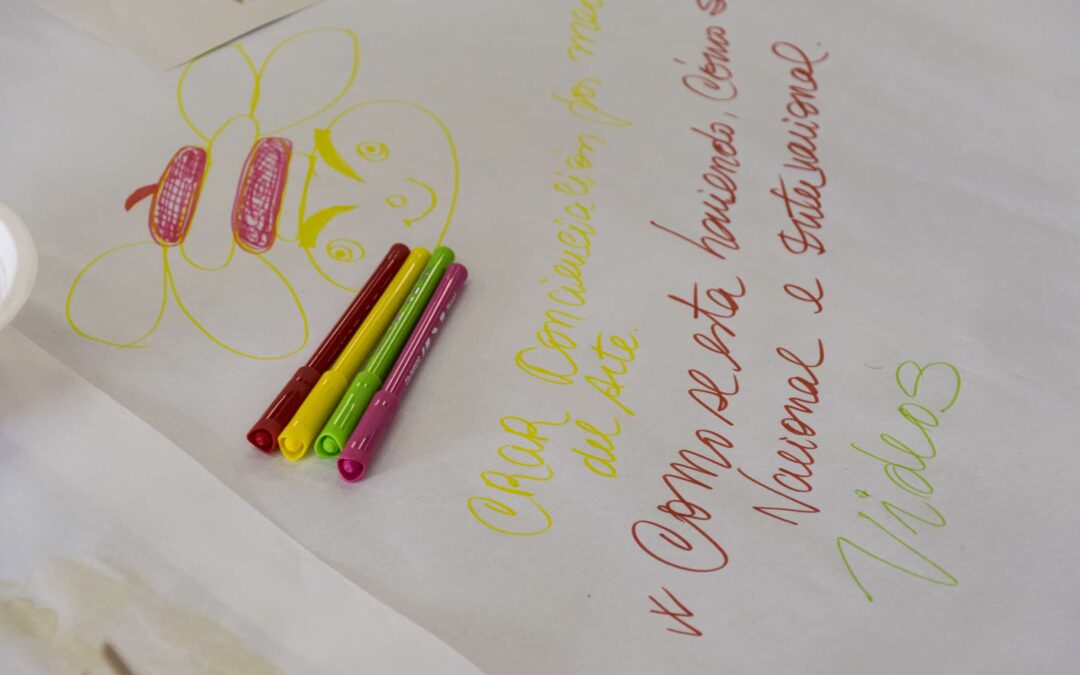 CRAR Concienciación por
del Arte.
x Como se esta haciendo, Cómo
Nacional e internacional.
Videos